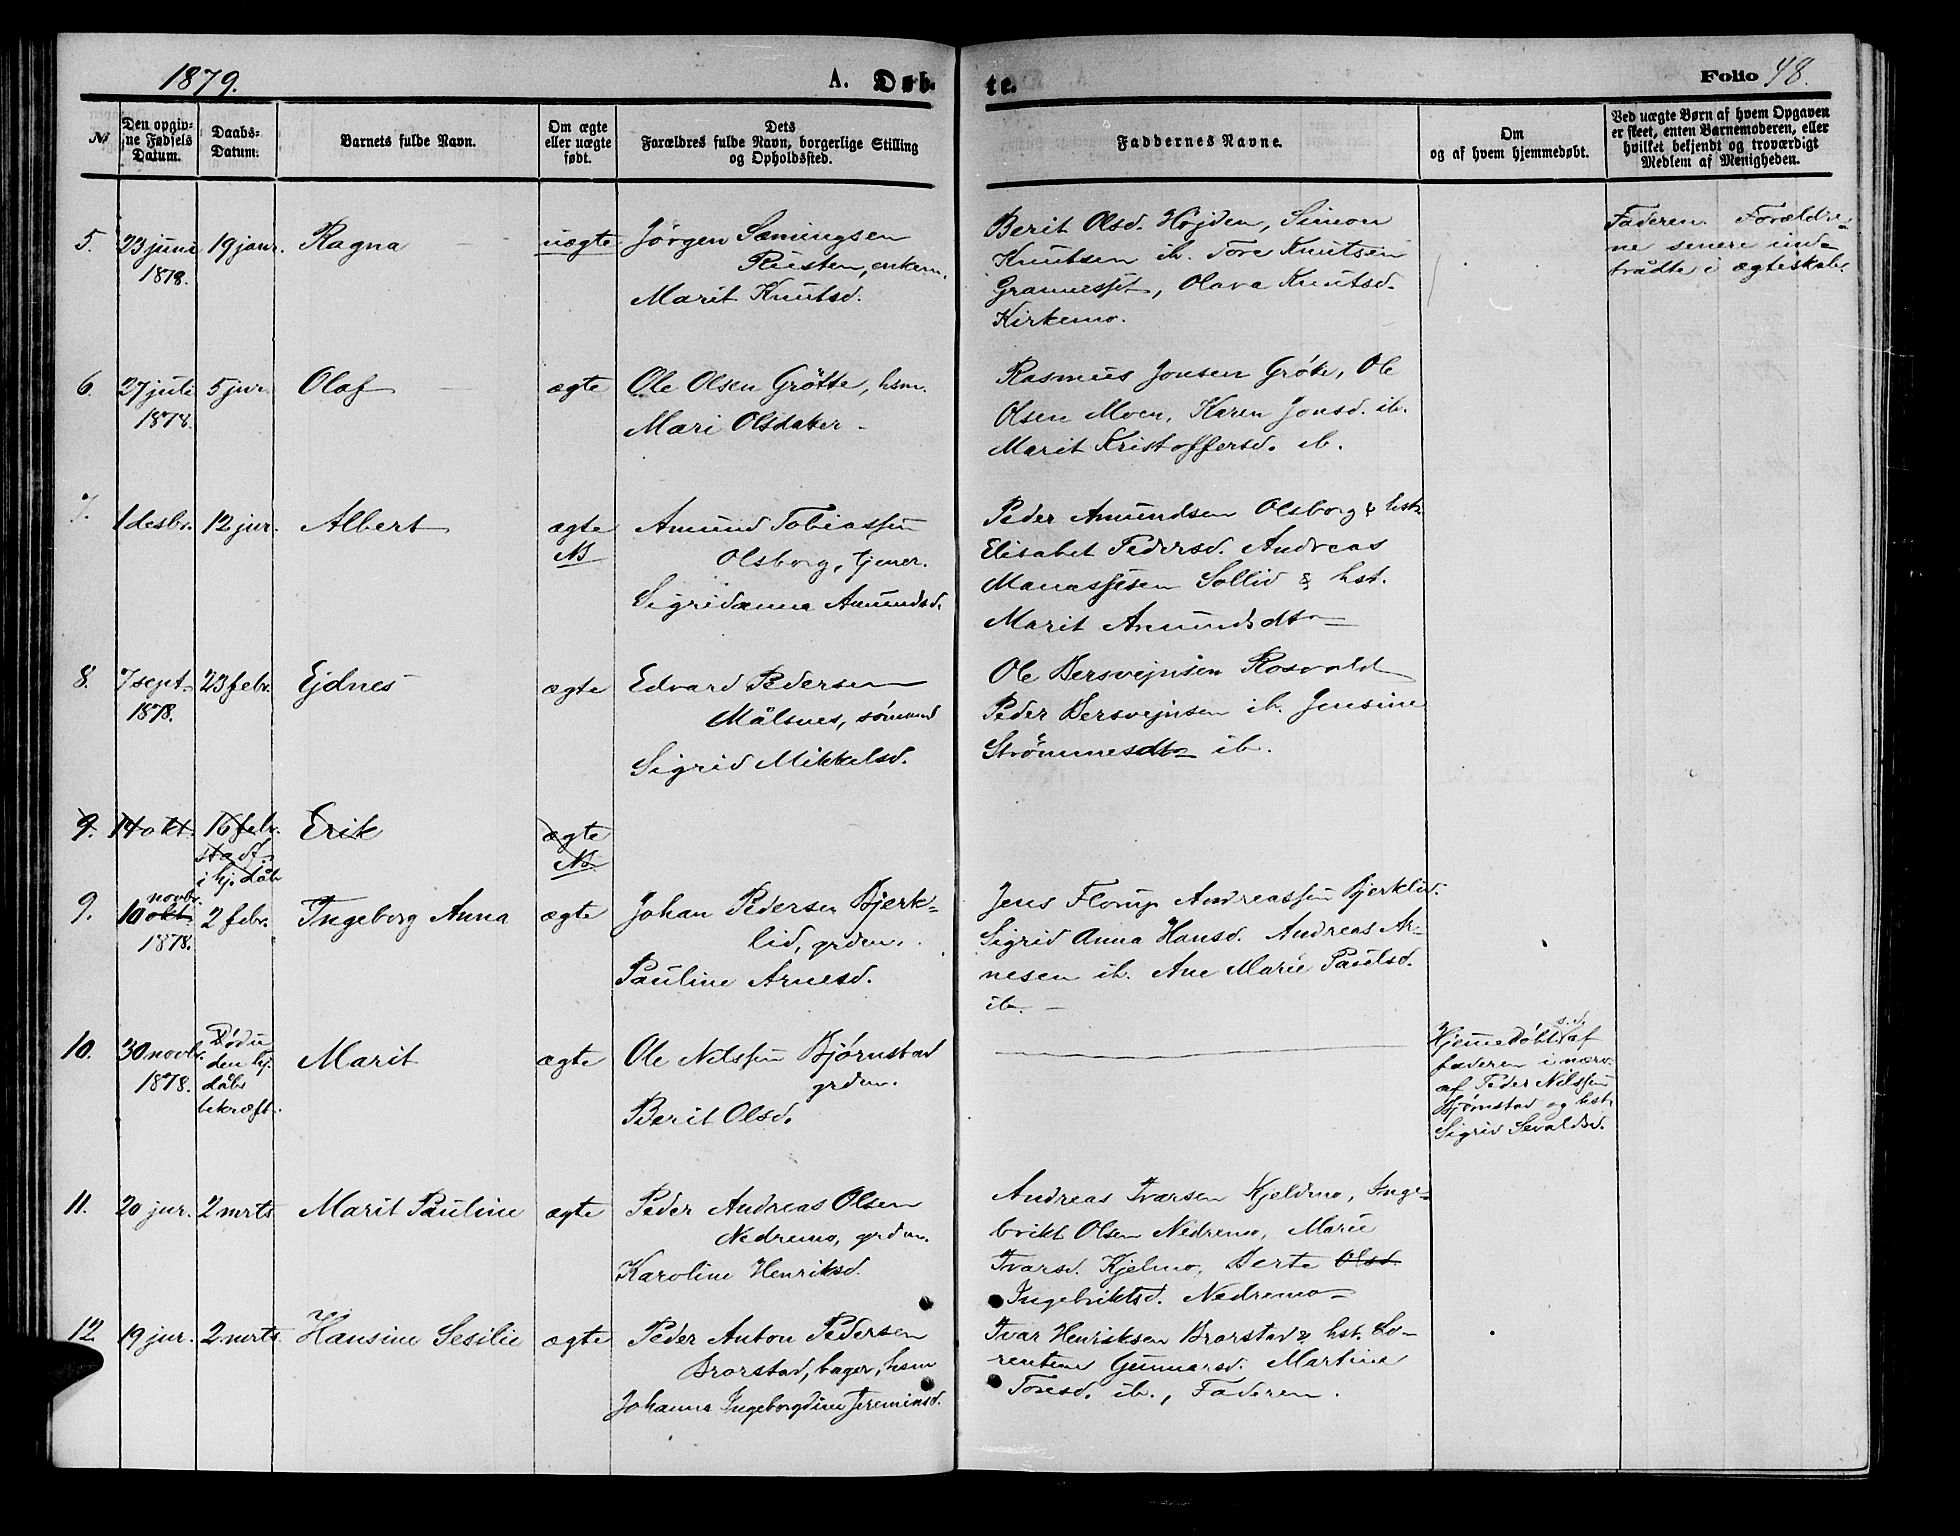 1879. A. Døb- te. Folio 48.
No
Den opgiv-
ne Fødsels
Datum.
Daabs-
Datum.
Barnets fulde Navn.
Om ægte
eller uægte
født.
Dets
Forældres fulde Navn, borgerlige Stilling
og Opholdssted.
Faddernes Navne.
Om
og af hvem hjemmedøbt.
Ved uægte Børn af hvem Opgaven
er skeet, enten Barnemoderen, eller
hvilket bekjendt og troværdigt
Medlem af Menigheden.
5. 23 juni
1878.
19 janr.
Ragna
uægte
Jørgen Sæmingsen
Rusten, enkem.
Marit Knutsd.
Berit Olsd. Højden, Simon
Knutsen ib. Tore Knutsen
Grannesset, Olava Knutsd.
Kirkemo.
Faderen. Forældre-
ne senere ind-
trådte i ægteskab.
6. 27 juli
1878.
5 jnr.
Olaf
ægte
Ole Olsen Grötte, hsm.
Mari Olsdatter
Rasmus Jonsen Gröte, Ole
Olsen Moen, Karen Jonsd. ib.
Marit Kristoffersd. ib.
7. 1 desbr.
12 jnr.
Albert
ægte
NB
Amund Tobiassen
Olsborg, tjener.
Sigridanna Amundsd.
Peder Amundsen Olsborg & hst.
Elisabet Pedersd. Andreas
Manassesen Sollid & hst.
Marit Amundsdtr
8. 7 sept.
1878.
23 febr.
Ejdnes
ægte
Edvard Pedersen
Målsnes, sømand
Sigrid Mikkelsd.
Ole Bersvejnsen Rosvold
Peder Bersvejnsen ib. Jensine
Strömmesdtr ib.
9. 14 okt.
16 febr.
stadf.
i hj. dåb
Erik
ægte
NB
9. novbr.
10 okt.
1878.
2 febr.
Ingeborg Anna
ægte
Johan Pedersen Bjerk-
lid, grdm.
Pauline Arnesd.
Jens Florup Andreassen Bjerklid.
Sigrid Anna Hansd. Andreas Ar-
nesen ib. Ane Marie Paulsd.
ib.
10. 30 novbr.
1878.
Död u
den hj.
dåbs
bekræft.
Marit
ægte
Ole Nilssen Bjørnstad
grdm.
Berit Olsd.
Hjemmedöbt s.d. af
faderen i nærv.
af Peder Nilssen
Bjørnstad og hst.
Sigrid Sevaldsd.
11. 20 jnr.
2 mrts
Marit Pauline
ægte
Peder Andreas Olsen
Nedremo, grdm.
Karoline Henriksd.
Andreas Ivarsen Kjeldmo, Inge-
brikt Olsen Nedremo, Marie
Ivarsd. Kjelmo, Berte Olsd
Ingebriktsd. Nedremo
12. 19 jnr.
2. mrts
Hansine Sesilie
ægte
Peder Anton Pedersen
Brorstad, bager, hsm
Johanna Ingeborgdine Jeremiasd.
Ivar Henriksen Brorstad & hst. Lo-
rentine Gunnarsd. Martine
Toresd. ib., Faderen.